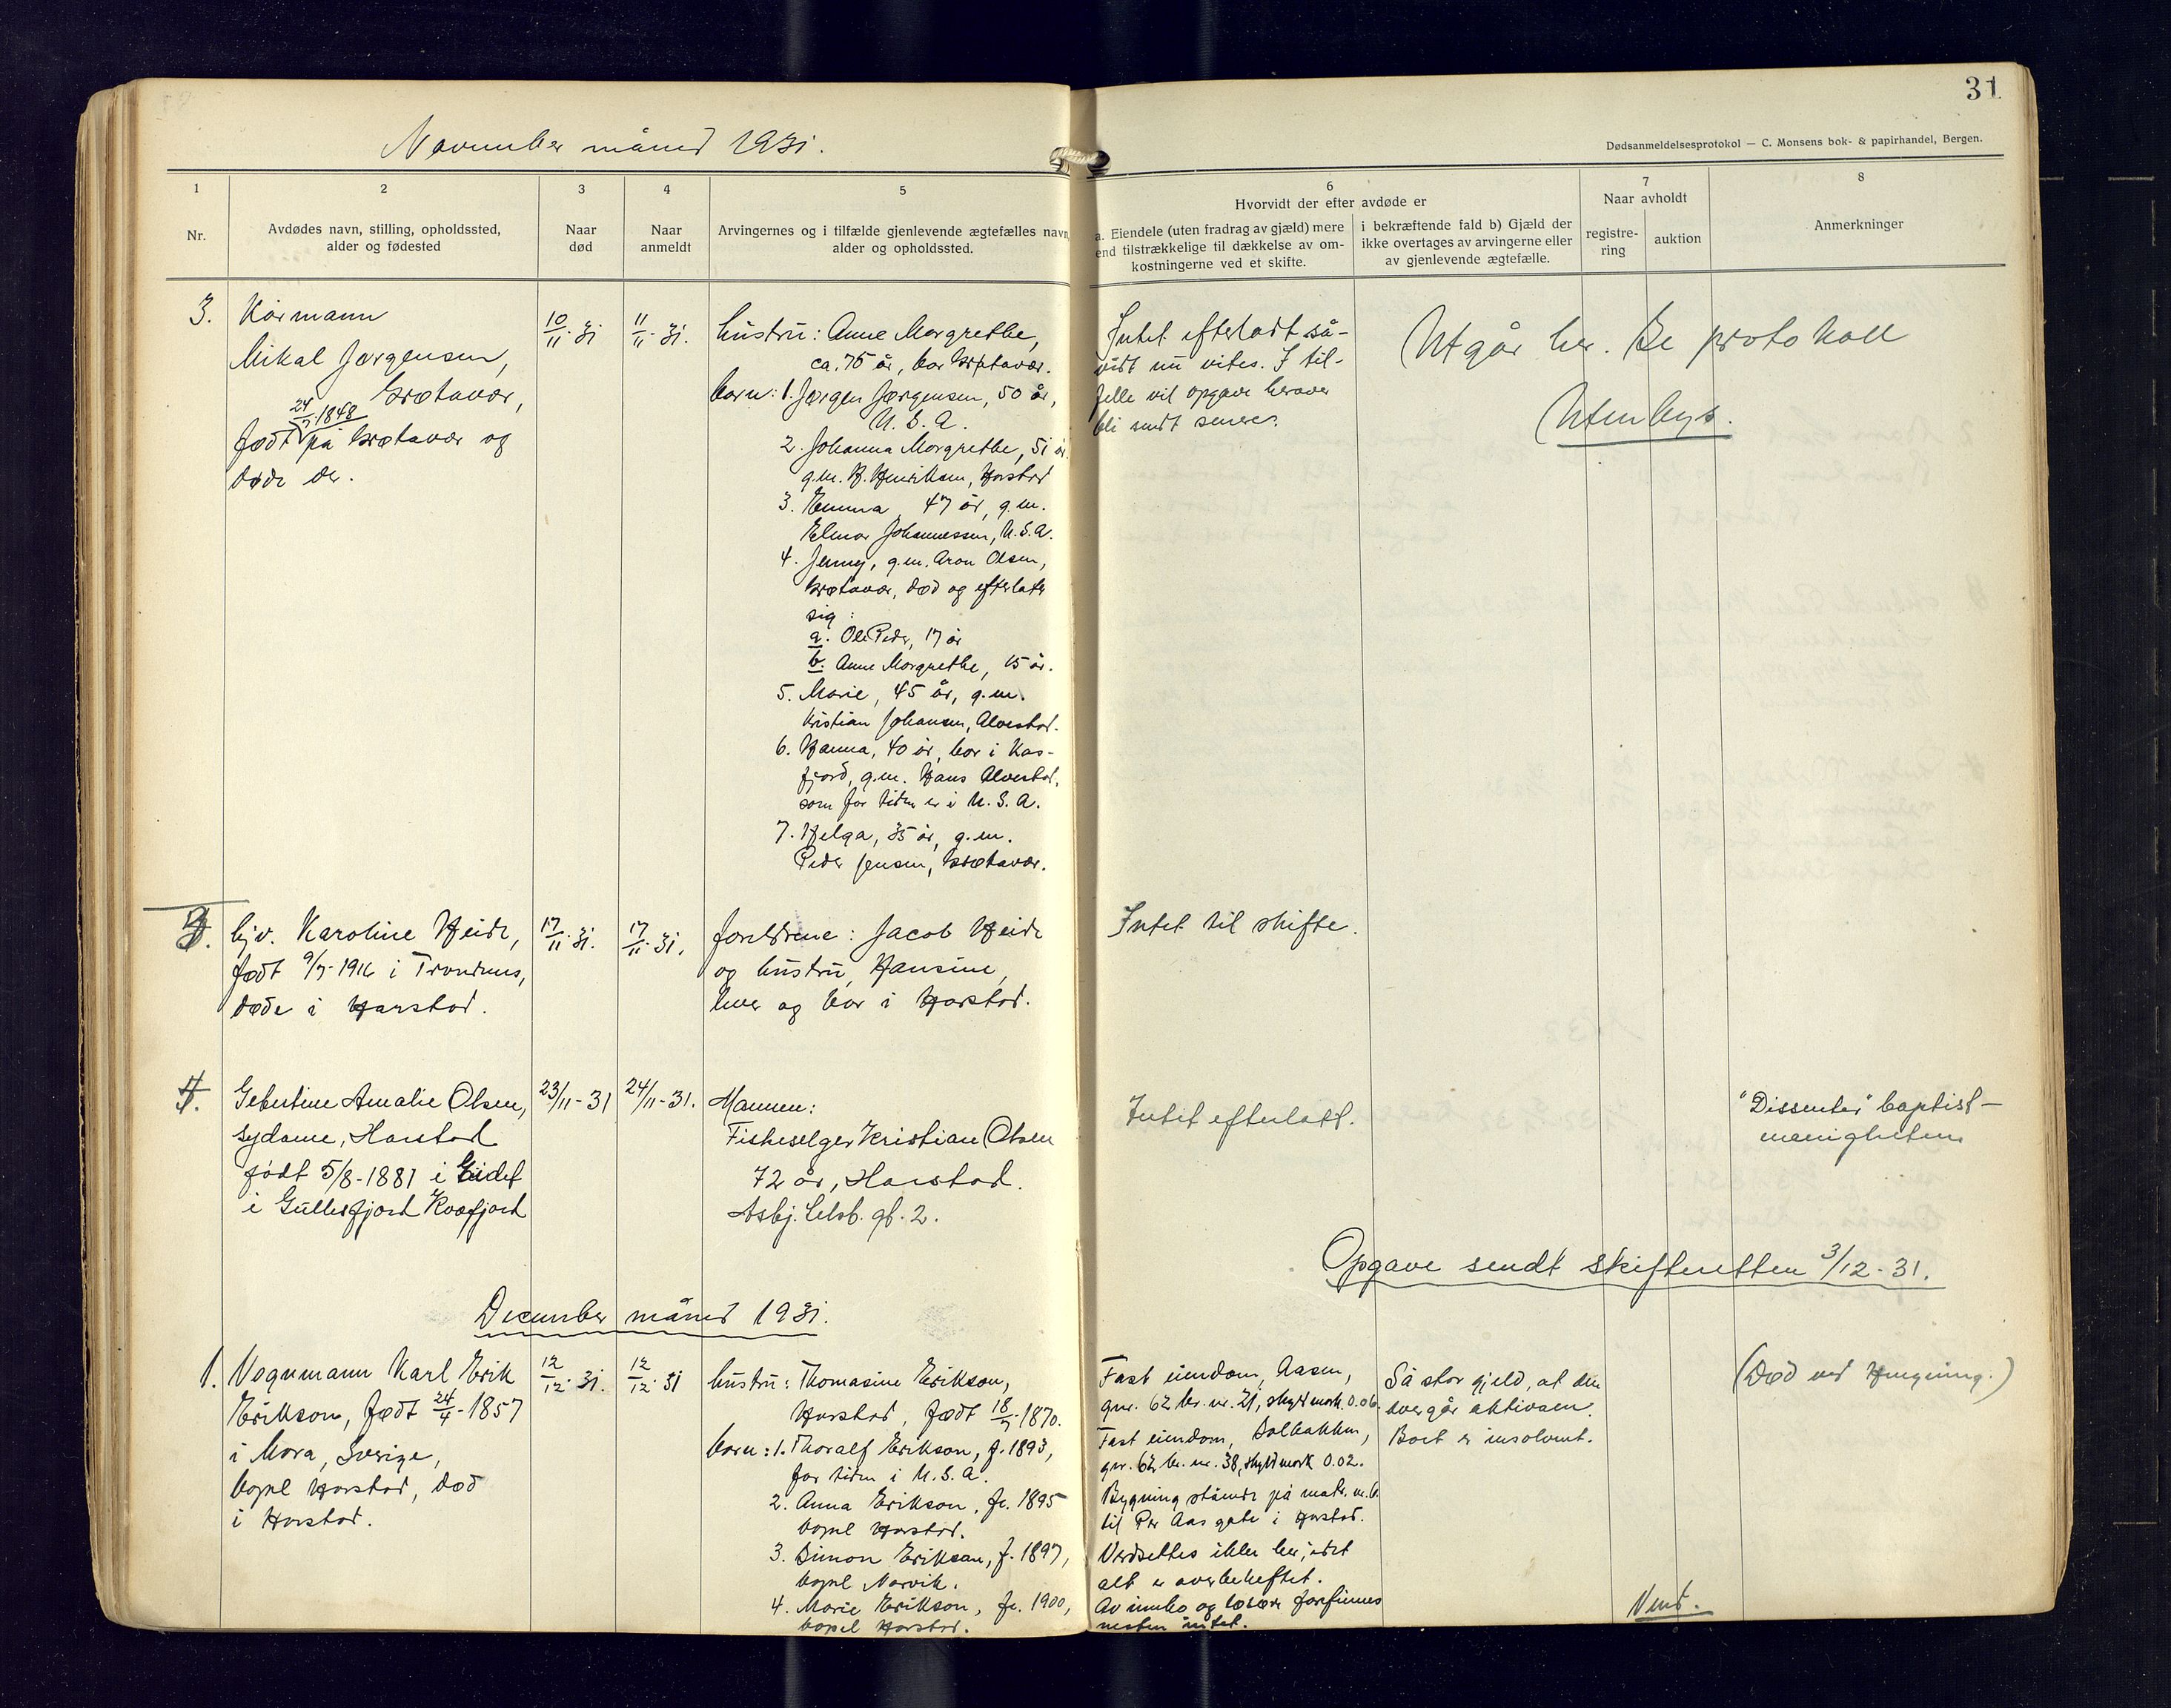 31
November måned 1931.
Dødsanmeldelsesprotokol — C. Monsens bok- & papirhandel, Bergen.
1
Nr.
2
Avdødes navn, stilling, opholdssted,
alder og fødested
3
Naar
død
4
Naar
anmeldt
5
Arvingernes og i tilfælde gjenlevende ægtefælles navn,
alder og opholdssted.
6
Hvorvidt der efter avdøde er
a. Eiendele (uten fradrag av gjæld) mere
end tilstrækkelige til dækkelse av om-
kostningerne ved et skifte.
i bekræftende fald b) Gjæld der
ikke overtages av arvingerne eller
av gjenlevende ægtefælle.
7
Naar avholdt
registre-
ring
auktion
8
Anmerkninger
3.
Kårmann
Mikal Jørgensen,
Grøtavær,
24/7-1848
født på Grøtavær og
døde der.
10/11-31
11/11-31.
hustru: Anne Margrethe,
ca. 75 år, bor Grøtavær.
barn: 1. Jørgen Jørgensen, 50 år,
U.S.A.
2. Johanna Margrethe, 51 år.
g.m. H. Henriksen, Harstad
3. Emma, 47 år, g.m.
Elmar Johannessen, U.S.A.
4. Jenny, g.m. Aron Olsen,
Grøtavær, død og efterlater
sig:
a. Ole Peder, 17 år
b. Anne Margrethe, 15 år.
5. Marie, 45 år, g.m.
Kristian Johansen, Alvestad.
6. Hanna, 40 år, bor i Kas-
fjord, g.m. Hans Alvestad,
som for tiden er i U.S.A.
7. Helga, 35 år, g.m.
Peder Jensen, Grøtavær.
Intet efterladt så-
vidt nu vites. I til-
felle vil opgave herover
bli sendt senere.
Utgår her. Se protokoll
Utenbys.
3.
hjv. Karoline Heide,
født 9/7-1916 i Trondenes,
døde i Harstad.
17/11-31.
17/11-31.
foreldrene: Jacob Heide
og hustru, Hansine,
lever og bor i Harstad.
Intet til skifte.
4.
Gebertine Amalie Olsen,
sydame, Harstad
født 5/8-1881 i Eidet
i Gullesfjord Kvæfjord
23/11-31
24/11-31.
Mannen:
Fiskeselger Kristian Olsen
72 år, Harstad.
Asbj. Selsb. gt. 2.
Intet efterlatt.
"Dissenter" baptist-
menigheten
Opgave sendt skifteretten 3/12-31.
December måned 1931.
1.
Vognmann Karl Erik
Erikson, født 24/4-1857
i Mora, Sverige,
bopel Harstad, død
i Harstad.
12/12-31.
12/12-31
hustru: Thomasine Erikson,
Harstad, født 18/7-1870.
barn: 1. Thoralf Erikson, f. 1893,
for tiden i U.S.A.
2. Anna Erikson, f. 1895
bopel Harstad.
3. Simon Erikson, f. 1897,
bopel Narvik.
4. Marie Erikson, f. 1900,
bopel Harstad.
Fast eiendom, Aasen,
gnr. 62 br.nr. 21, skyldmark 0.06.
Fast eiendom, Solbakken,
gnr. 62 br.nr. 38, skyldmark 0.02.
Bygning stående på matr. nr. 6.
til Per Aas gate i Harstad.
Verdsettes ikke her, idet
alt er overbeheftet.
Av innbo og løsøre forefinnes
nesten intet.
Så stor gjeld, at den
overgår aktivaen.
Boet er insolvent.
(Død ved hengning.)
Vend.